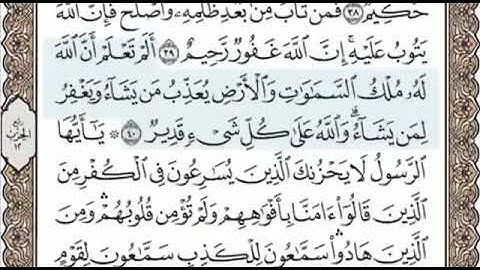 حَكِيمٌ ٣٨ فَمَن تَابَ مِنۢ بَعۡدِ ظُلۡمِهِۦ وَأَصۡلَحَ فَإِنَّ ٱللَّهَ
يَتُوبُ عَلَيۡهِۚ إِنَّ ٱللَّهَ غَفُورٞ رَّحِيمٌ ٣٩ أَلَمۡ تَعۡلَمۡ أَنَّ ٱللَّهَ
لَهُۥ مُلۡكُ ٱلسَّمَٰوَٰتِ وَٱلۡأَرۡضِ يُعَذِّبُ مَن يَشَآءُ وَيَغۡفِرُ
لِمَن يَشَآءُۗ وَٱللَّهُ عَلَىٰ كُلِّ شَيۡءٖ قَدِيرٞ ٤٠ ۞ يَٰٓأَيُّهَا
ٱلرَّسُولُ لَا يَحۡزُنكَ ٱلَّذِينَ يُسَٰرِعُونَ فِي ٱلۡكُفۡرِ مِنَ
ٱلَّذِينَ قَالُوٓاْ ءَامَنَّا بِأَفۡوَٰهِهِمۡ وَلَمۡ تُؤۡمِن قُلُوبُهُمۡۛ وَمِنَ
ٱلَّذِينَ هَادُواْۛ سَمَّٰعُونَ لِلۡكَذِبِ سَمَّٰعُونَ لِقَوۡمٍ
ربع
الحزب
١٢